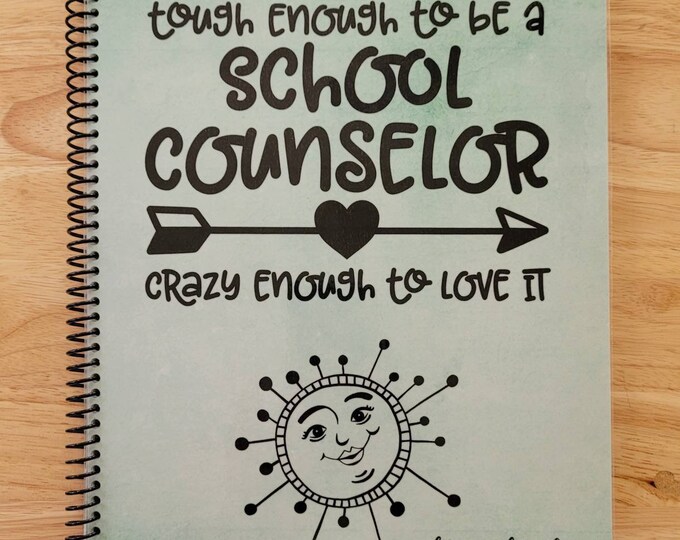 tough Enough to bE a
School
CounSELOR
CRazy Enough to LOVE IT